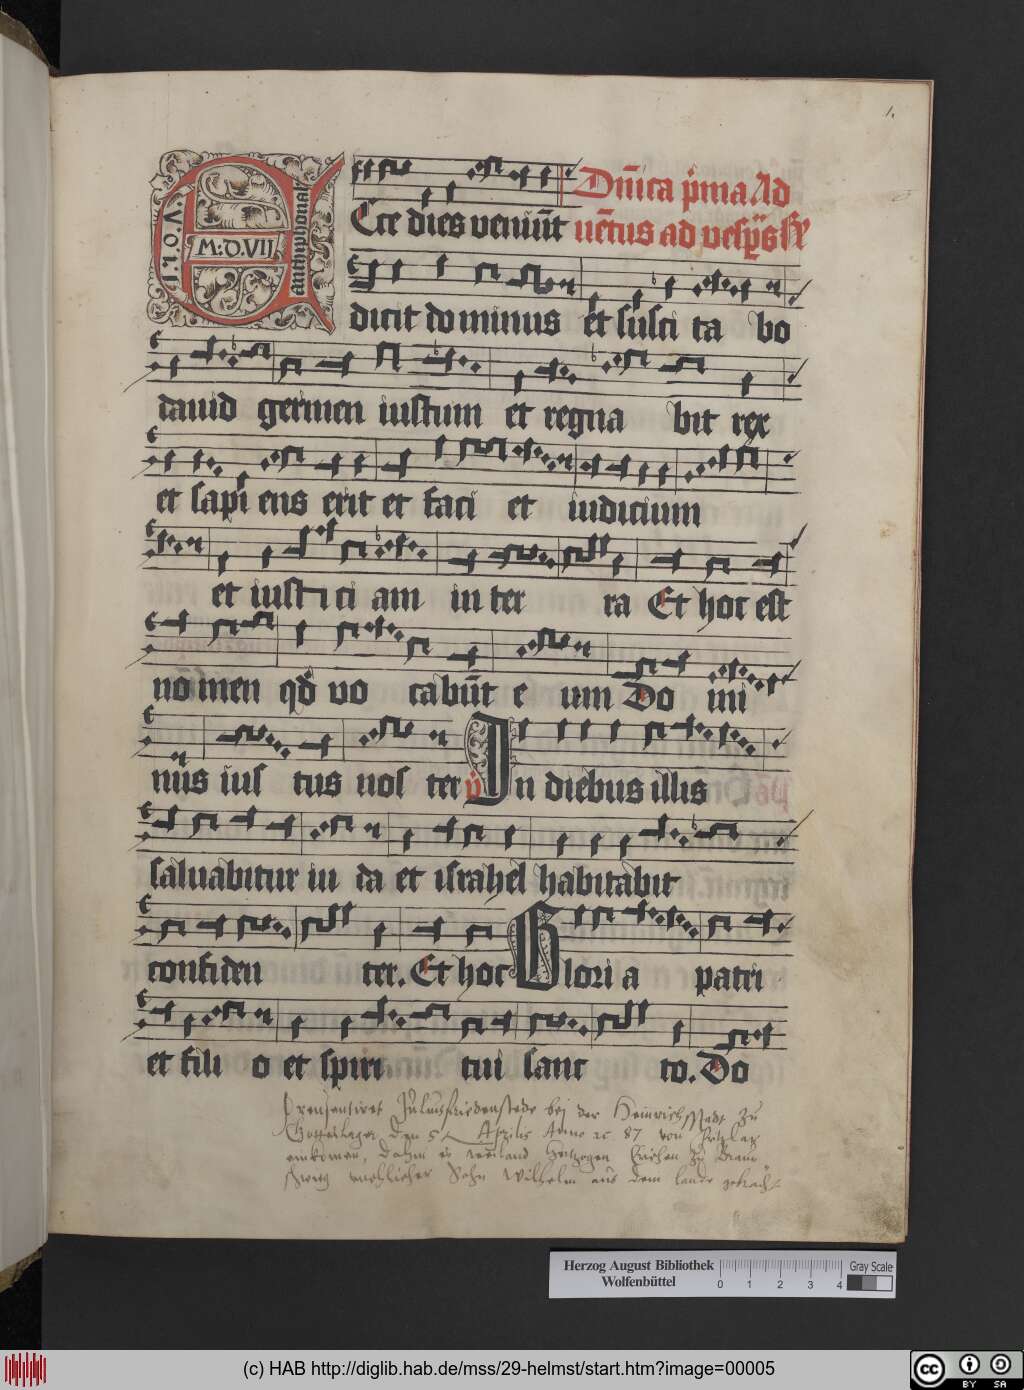 1.
M:D.VII
Antiphonale
Dn̄ica p̄ma Ad
Ecce dies veniūt uētus ad vesp̄as
dicit dominus et susci ta bo
dauid germen iustum et regna bit rex
et sapi ens erit et faci et iudicium
et iustici am in ter ra Et hoc est
nomen qd̄ vo cabūt e um Do mi
nus ius tus nos ter In diebus illis
saluabitur iu da et israhel habitabit
confiden ter. Et hoc Glori a patri
et fili o et spiri tui sanc to. Do
Praesentiret Julius friedenstede bei der Heinrichsstadt zu
den 5 Aprilis Anno 87 von
einkomen, dahin es weiland Hertzogen Erichen zu Braun
Sohn Wilhelm aus dem lande gebracht
Herzog August Bibliothek
Wolfenbüttel
0 1 2 3 4
Gray Scale
(c) HAB http://diglib.hab.de/mss/29-helmst/start.htm?image=00005
cc BY SA